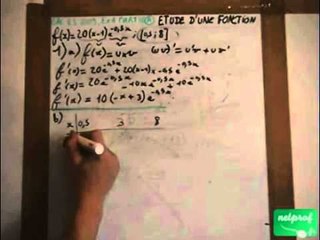 BAC ES 2009, EXO PARTIE A ETUDE D'UNE FONCTION
f(x)=20(x-1)e^-0,5x ; [0,5 ; 8]
1) a) f(x)=u×v (uv)'=u'v+uv'
f'(x)=20e^-0,5x+20(x-1)x-0,5e^-0,5x
f'(x)=20e^-0,5x-10xe^-0,5x+10e^-0,5x
f'(x)=10(-x+3)e^-0,5x
b) x 0,5 3 8
netprof